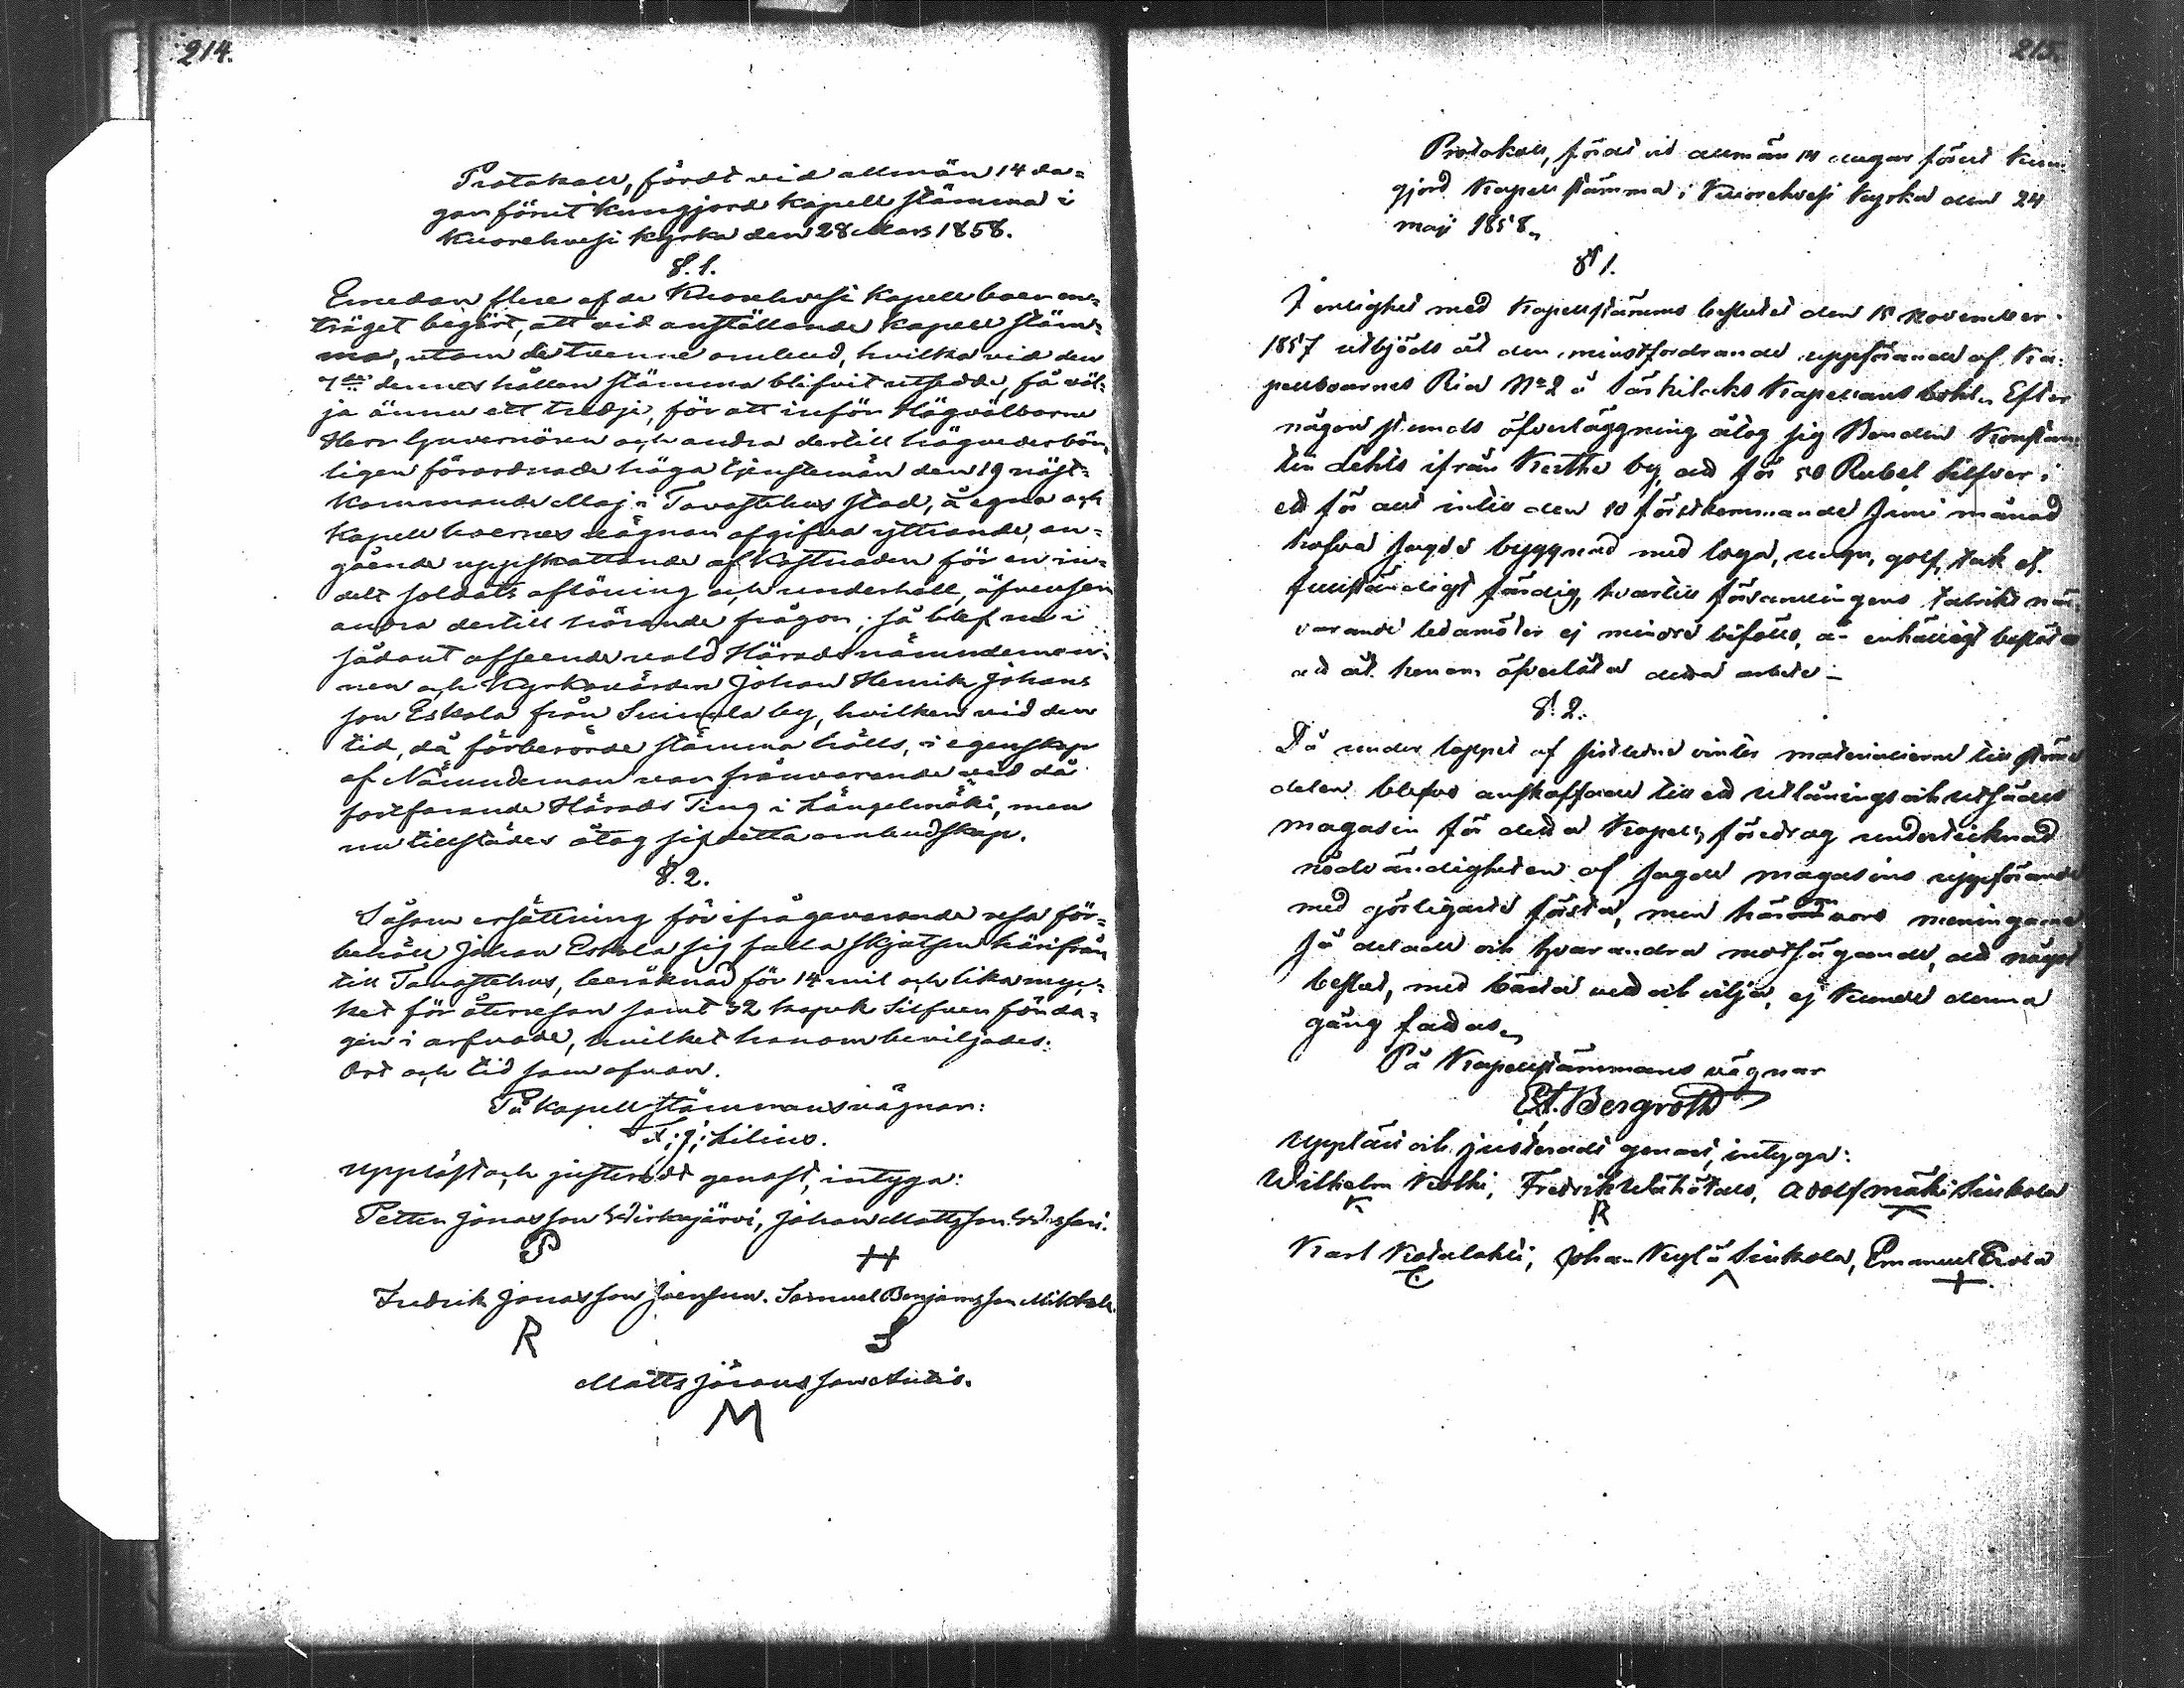 214.
Protokoll, fördt vid allmän 14 da=
gar förut kungjord kapell stämma i
Kuorehvesi kyrka den 28 Mars 1858.
§. 1.
Emedan flere af de Kuorehvesi kapell boer en=
träget begärt, att vid anställande kapell stäm=
ma, utom de tvenne ombud, hvilka vid den
7de dennes hållen stämma blifvit utsedde, få väl=
ja ännu ett tredje, för att inför Högvälborne
Herr Guvernören och andra dertill högvederbör
ligen förordnade höga tjenstemän den 19 näst=
kommande Maj i Tavastehus stad, å egna och
kapell boernes vägnar afgifva yttrande, an=
gående uppskattande af kostnaden för en in=
delt soldats aflöning och underhåll, äfvensom
andra dertill hörande frågor; så blef nu i
sådant afseende vald Häradsnämndeman=
nen och Kyrkovärden Johan Henrik Johans
son Eskola från Suinula by, hvilken vid den
tid, då förberörde stämma hölls, i egenskap
af Nämndeman var frånvarande vid då
fortfarande Härads Ting i Längelmäki, men
nu tillstädes åtog sig detta ombudskap.
§. 2.
Såsom ersättning för ifrågavarande resa för=
behöll Johan Eskola sig fulla skjutsen härifrån
till Tavastehus, beräknad för 14 mil och lika myc=
ket för återresan samt 32 kopek Silfver för da=
gen i arfvode, hvilket honom beviljades.
Ort och tid som ofvan.
På kapell stämmans vägnar:
F. J. Lilius.
Uppläst och justeradt genast, intyga:
Petter Jonasson Wirkajärvi, Johan Mattsson
P H
Fredrik Jonasson Samuel Benjamsson Mikkola.
R S
Matts Göransson Anttis.
M
215.
Protokoll, fördt vid allmän 14 dagar förut kun=
gjord Kapell stämma i Kuorehvesi Kyrka den 24
maji 1858.
§ 1.
I enlighet med Kapellstämmo beslutet den 15 november
1857 utbjöds åt den minstfordrande uppförandet af Ka=
pellboarnes Ria № 2 å Kapellans bohl. Efter
någon stunds öfverläggning åtog sig Bonden Konstan=
tin Lehtis ifrån by, att för 50 Rubel Silfver i
ett för allt intill den 10 förstkommande Juni månad
hafva sagde byggnad med loga, ungn, golf, tak etc.
fullständigt färdig, hvartill församlingens talrikt när=
varande ledamöter ej mindre biföllo, än enhälligt beslöto
att åt honom öfverlåta detta arbete. –
§. 2.
Då under loppet af sistledne vinter materialierne till större
delen blefvo anskaffade till ett utlånings och utsädes
magasin för detta Kapell, föredrog undertecknad
nödvändigheten af sagde magasins uppförande
med görligaste första, men härom voro meningarne
så delade och hvarandra motsägande, att något
beslut, med bästa vett och vilja, ej kunde denna
gång fattas.
På Kapellstämmans vägnar
E. A. Bergroth
Uppläst och justeradt genast, intyga:
Wilhelm Fredrik Adolf Mäki Sinkola
R
Karl Kotalahti, Johan Kylä Sinkola, Emanuel Erola